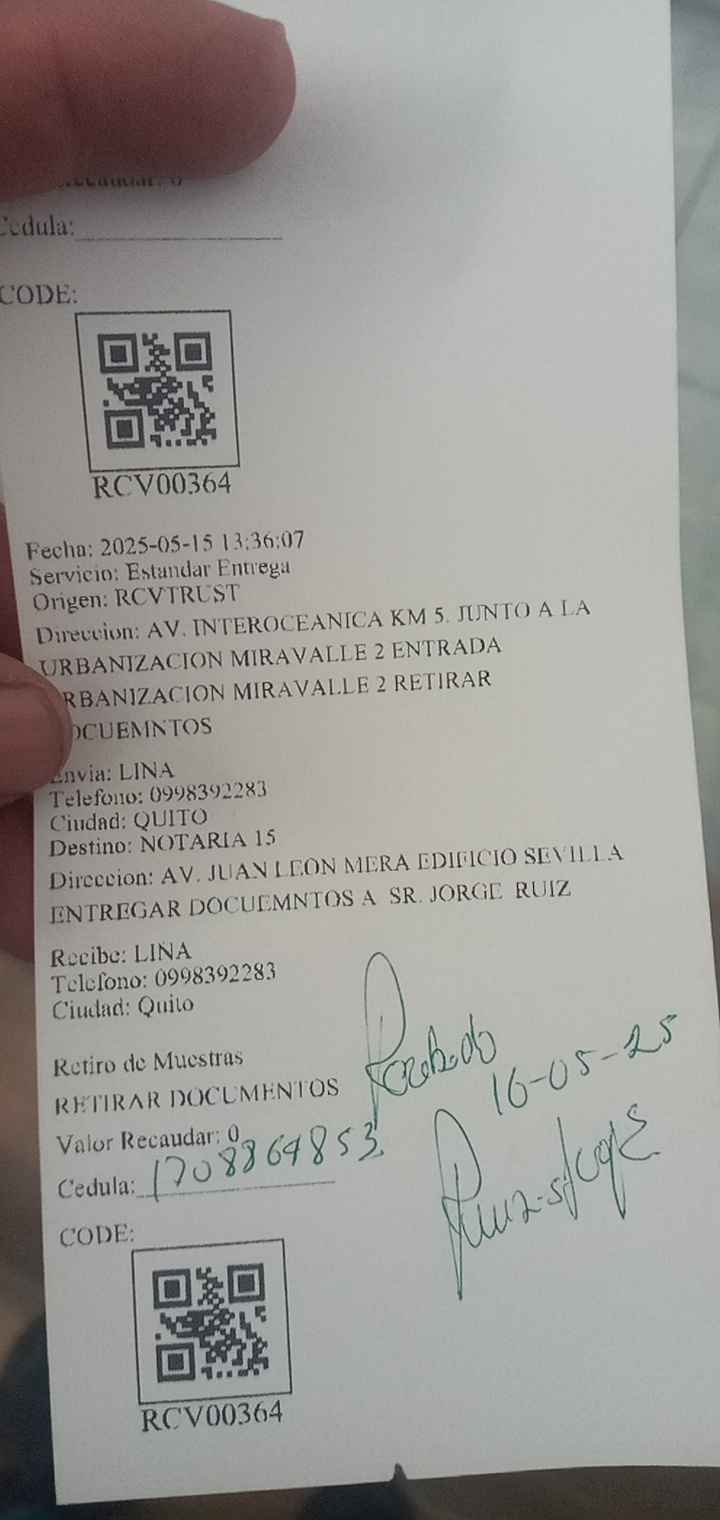 Cedula:
CODE:
RCV00364
Fecha: 2025-05-15 13:36:07
Servicio: Estandar Entrega
Origen: RCVTRUST
Direccion: AV. INTEROCEANICA KM 5. JUNTO A LA
URBANIZACION MIRAVALLE 2 ENTRADA
RBANIZACION MIRAVALLE 2 RETIRAR
OCUEMNTOS
Envia: LINA
Telefono: 0998392283
Ciudad: QUITO
Destino: NOTARIA 15
Direccion: AV. JUAN LEON MERA EDIFICIO SEVILLA
ENTREGAR DOCUEMNTOS A SR. JORGE RUIZ
Recibe: LINA
Telefono: 0998392283
Ciudad: Quito
Retiro de Muestras
RETIRAR DOCUMENTOS
16-05-25
Valor Recaudar: 0
Cedula: 1708864853
CODE:
RCV00364